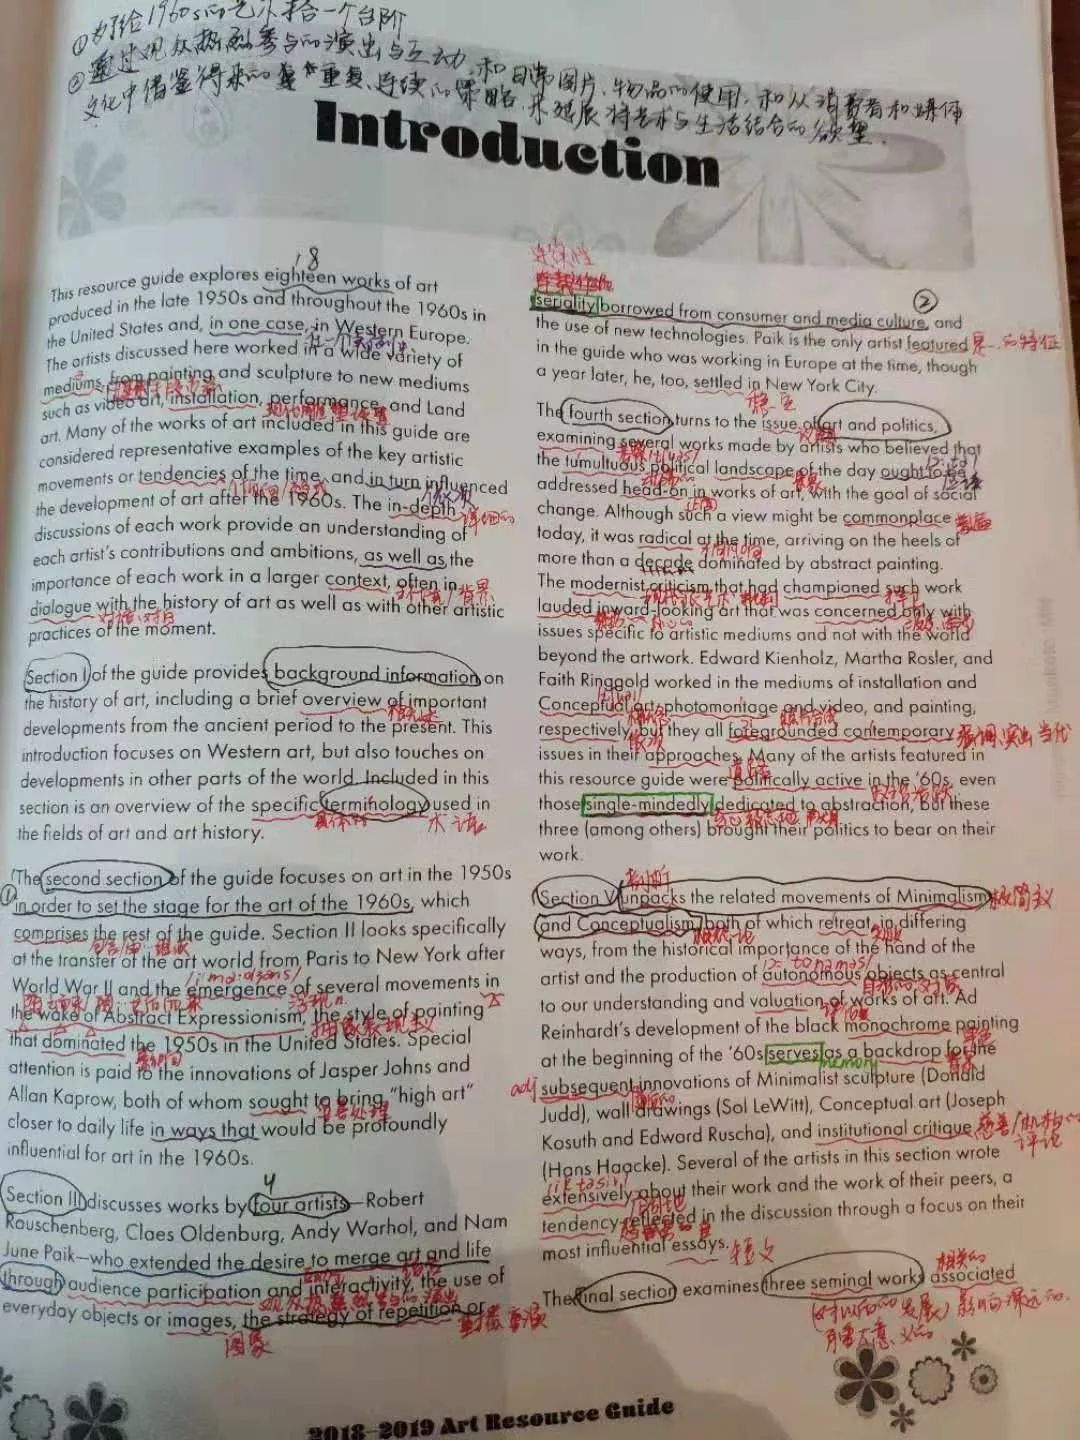 ①为了给1960s的艺术搭一个台阶
②通过观众热烈参与的演出与互动,和日常图片、物品的使用,和从消费者和媒体
文化中借鉴得来的重复、连续的策略,来延展将艺术与生活结合的欲望.
Introduction
18
This resource guide explores eighteen works of art
produced in the late 1950s and throughout the 1960s in
the United States and, in one case, in Western Europe.
The artists discussed here worked in a wide variety of
mediums, from painting and sculpture to new mediums
such as video art, installation, performance, and Land
art. Many of the works of art included in this guide are
considered representative examples of the key artistic
movements or tendencies of the time, and in turn influenced
the development of art after the 1960s. The in-depth
详细的
discussions of each work provide an understanding of
each artist's contributions and ambitions, as well as the
importance of each work in a larger context, often in
背景
dialogue with the history of art as well as with other artistic
对话
practices of the moment.
Section I of the guide provides background information on
the history of art, including a brief overview of important
概述
developments from the ancient period to the present. This
introduction focuses on Western art, but also touches on
developments in other parts of the world. Included in this
section is an overview of the specific terminology used in
具体的 术语
the fields of art and art history.
The second section of the guide focuses on art in the 1950s
① in order to set the stage for the art of the 1960s, which
comprises the rest of the guide. Section II looks specifically
at the transfer of the art world from Paris to New York after
World War II and the emergence of several movements in
the wake of Abstract Expressionism, the style of painting
抽象表现主义
that dominated the 1950s in the United States. Special
attention is paid to the innovations of Jasper Johns and
Allan Kaprow, both of whom sought to bring "high art"
closer to daily life in ways that would be profoundly
influential for art in the 1960s.
4
Section III discusses works by four artists—Robert
Rauschenberg, Claes Oldenburg, Andy Warhol, and Nam
June Paik—who extended the desire to merge art and life
through audience participation and interactivity, the use of
everyday objects or images, the strategy of repetition or
图象
连续性
② seriality borrowed from consumer and media culture, and
the use of new technologies. Paik is the only artist featured 是…的特征
in the guide who was working in Europe at the time, though
a year later, he, too, settled in New York City.
The fourth section turns to the issue of art and politics,
examining several works made by artists who believed that
the tumultuous political landscape of the day ought to be
应该
addressed head-on in works of art, with the goal of social
change. Although such a view might be commonplace 普遍
today, it was radical at the time, arriving on the heels of
more than a decade dominated by abstract painting.
The modernist criticism that had championed such work
lauded inward-looking art that was concerned only with
issues specific to artistic mediums and not with the world
beyond the artwork. Edward Kienholz, Martha Rosler, and
Faith Ringgold worked in the mediums of installation and
Conceptual art, photomontage and video, and painting,
respectively, but they all foregrounded contemporary 强调、演出当代
issues in their approaches. Many of the artists featured in
this resource guide were politically active in the '60s, even
those single-mindedly dedicated to abstraction, but these
three (among others) brought their politics to bear on their
work.
Section V unpacks the related movements of Minimalism 极简主义
and Conceptualism, both of which retreat, in differing
ways, from the historical importance of the hand of the
artist and the production of autonomous objects as central
to our understanding and valuation of works of art. Ad
Reinhardt's development of the black monochrome painting
at the beginning of the '60s serves as a backdrop for the
adj subsequent innovations of Minimalist sculpture (Donald
Judd), wall drawings (Sol LeWitt), Conceptual art (Joseph
Kosuth and Edward Ruscha), and institutional critique
评论
(Hans Haacke). Several of the artists in this section wrote
extensively about their work and the work of their peers, a
tendency reflected in the discussion through a focus on their
most influential essays. 短文
相关的
The final section examines three seminal works associated
(对以后的发展)影响深远的.
2018–2019 Art Resource Guide